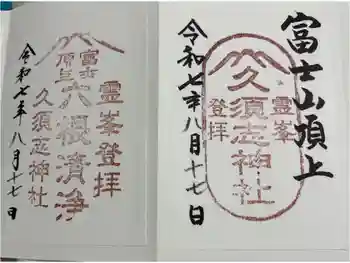 富士山頂上
霊峯登拝
久須志神社
登拝
令和七年八月十七日
霊峯登拝
富士
六根清浄
頂上
久須志神社
令和七年八月十七日